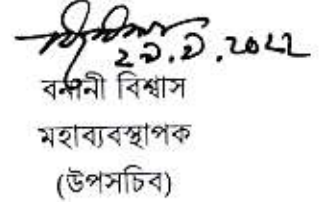 ২৯.৯.২০২২
বনানী বিশ্বাস
মহাব্যবস্থাপক
(উপসচিব)